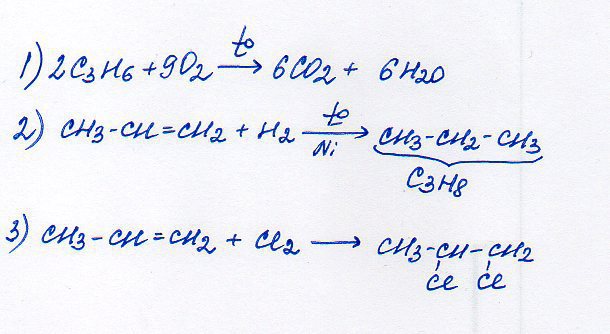 1) 2C3H6 + 9O2 →t° 6CO2 + 6H2O
2) CH3-CH=CH2 + H2 →t° Ni CH3-CH2-CH3
C3H8
3) CH3-CH=CH2 + Cl2 → CH3-CH-CH2
Cl Cl